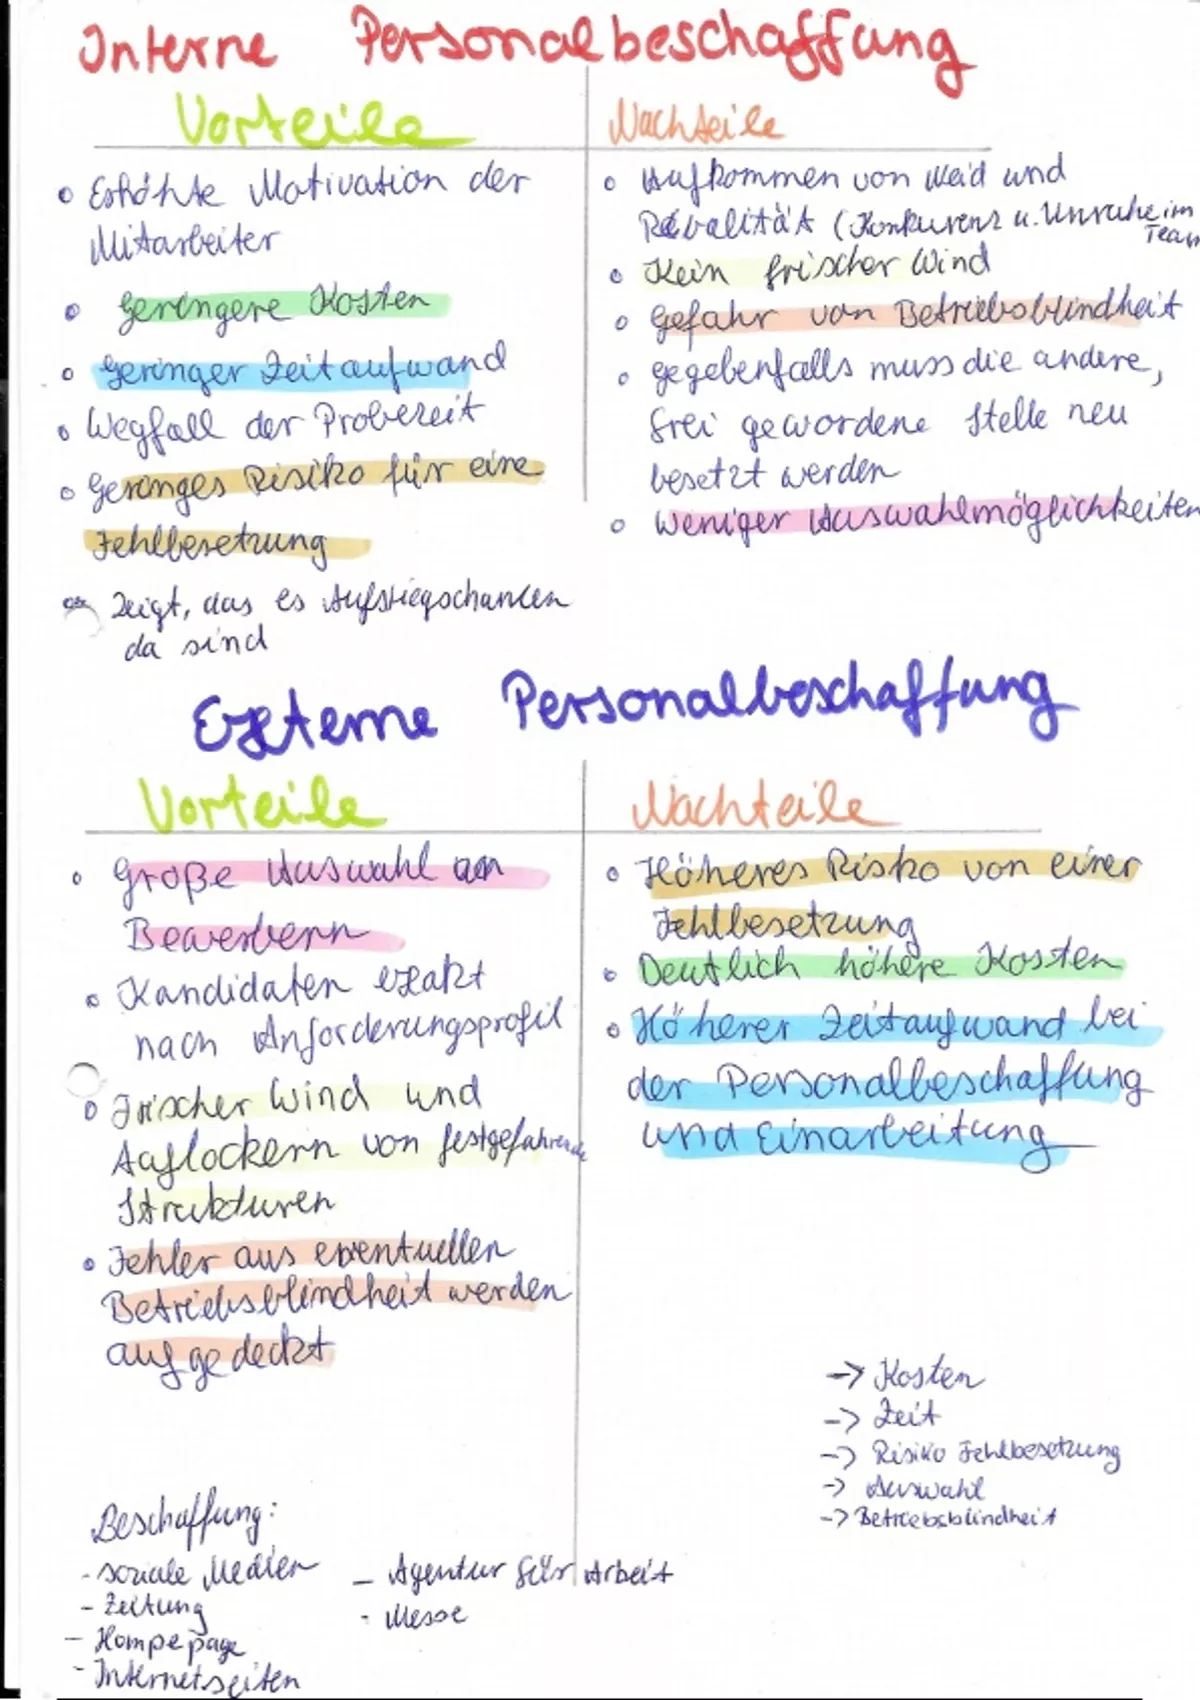 Interne Personalbeschaffung
Vorteile
• Erhöhte Motivation der
Mitarbeiter
• Geringere Kosten
• Geringer Zeitaufwand
• Wegfall der Probezeit
• Geringes Risiko für eine
Fehlbesetzung
Zeigt, das es Aufstiegschancen
da sind
Nachteile
• Aufkommen von Neid und
Rivalität (Konkurenz u. Unruhe im
Team
• Kein frischer Wind
• Gefahr von Betriebsblindheit
• gegebenfalls muss die andere,
frei gewordene Stelle neu
besetzt werden
• Weniger Auswahlmöglichkeiten
Externe Personalbeschaffung
Vorteile
• Große Auswahl an
Bewerbern
• Kandidaten exakt
nach Anforderungsprofil
• Frischer Wind und
Auflockern von festgefahrene
Strukturen
• Fehler aus eventuellen
Betriebsblindheit werden
aufgedeckt
Nachteile
• Höheres Risko von einer
Fehlbesetzung
• Deutlich höhere Kosten
• Höherer Zeitaufwand bei
der Personalbeschaffung
und Einarbeitung
-> Kosten
-> Zeit
-> Risiko Fehlbesetzung
-> Auswahl
-> Betriebsblindheit
Beschaffung:
- soziale Medien
- Zeitung
- Hompepage
- Internetseiten
- Agentur für Arbeit
- Messe